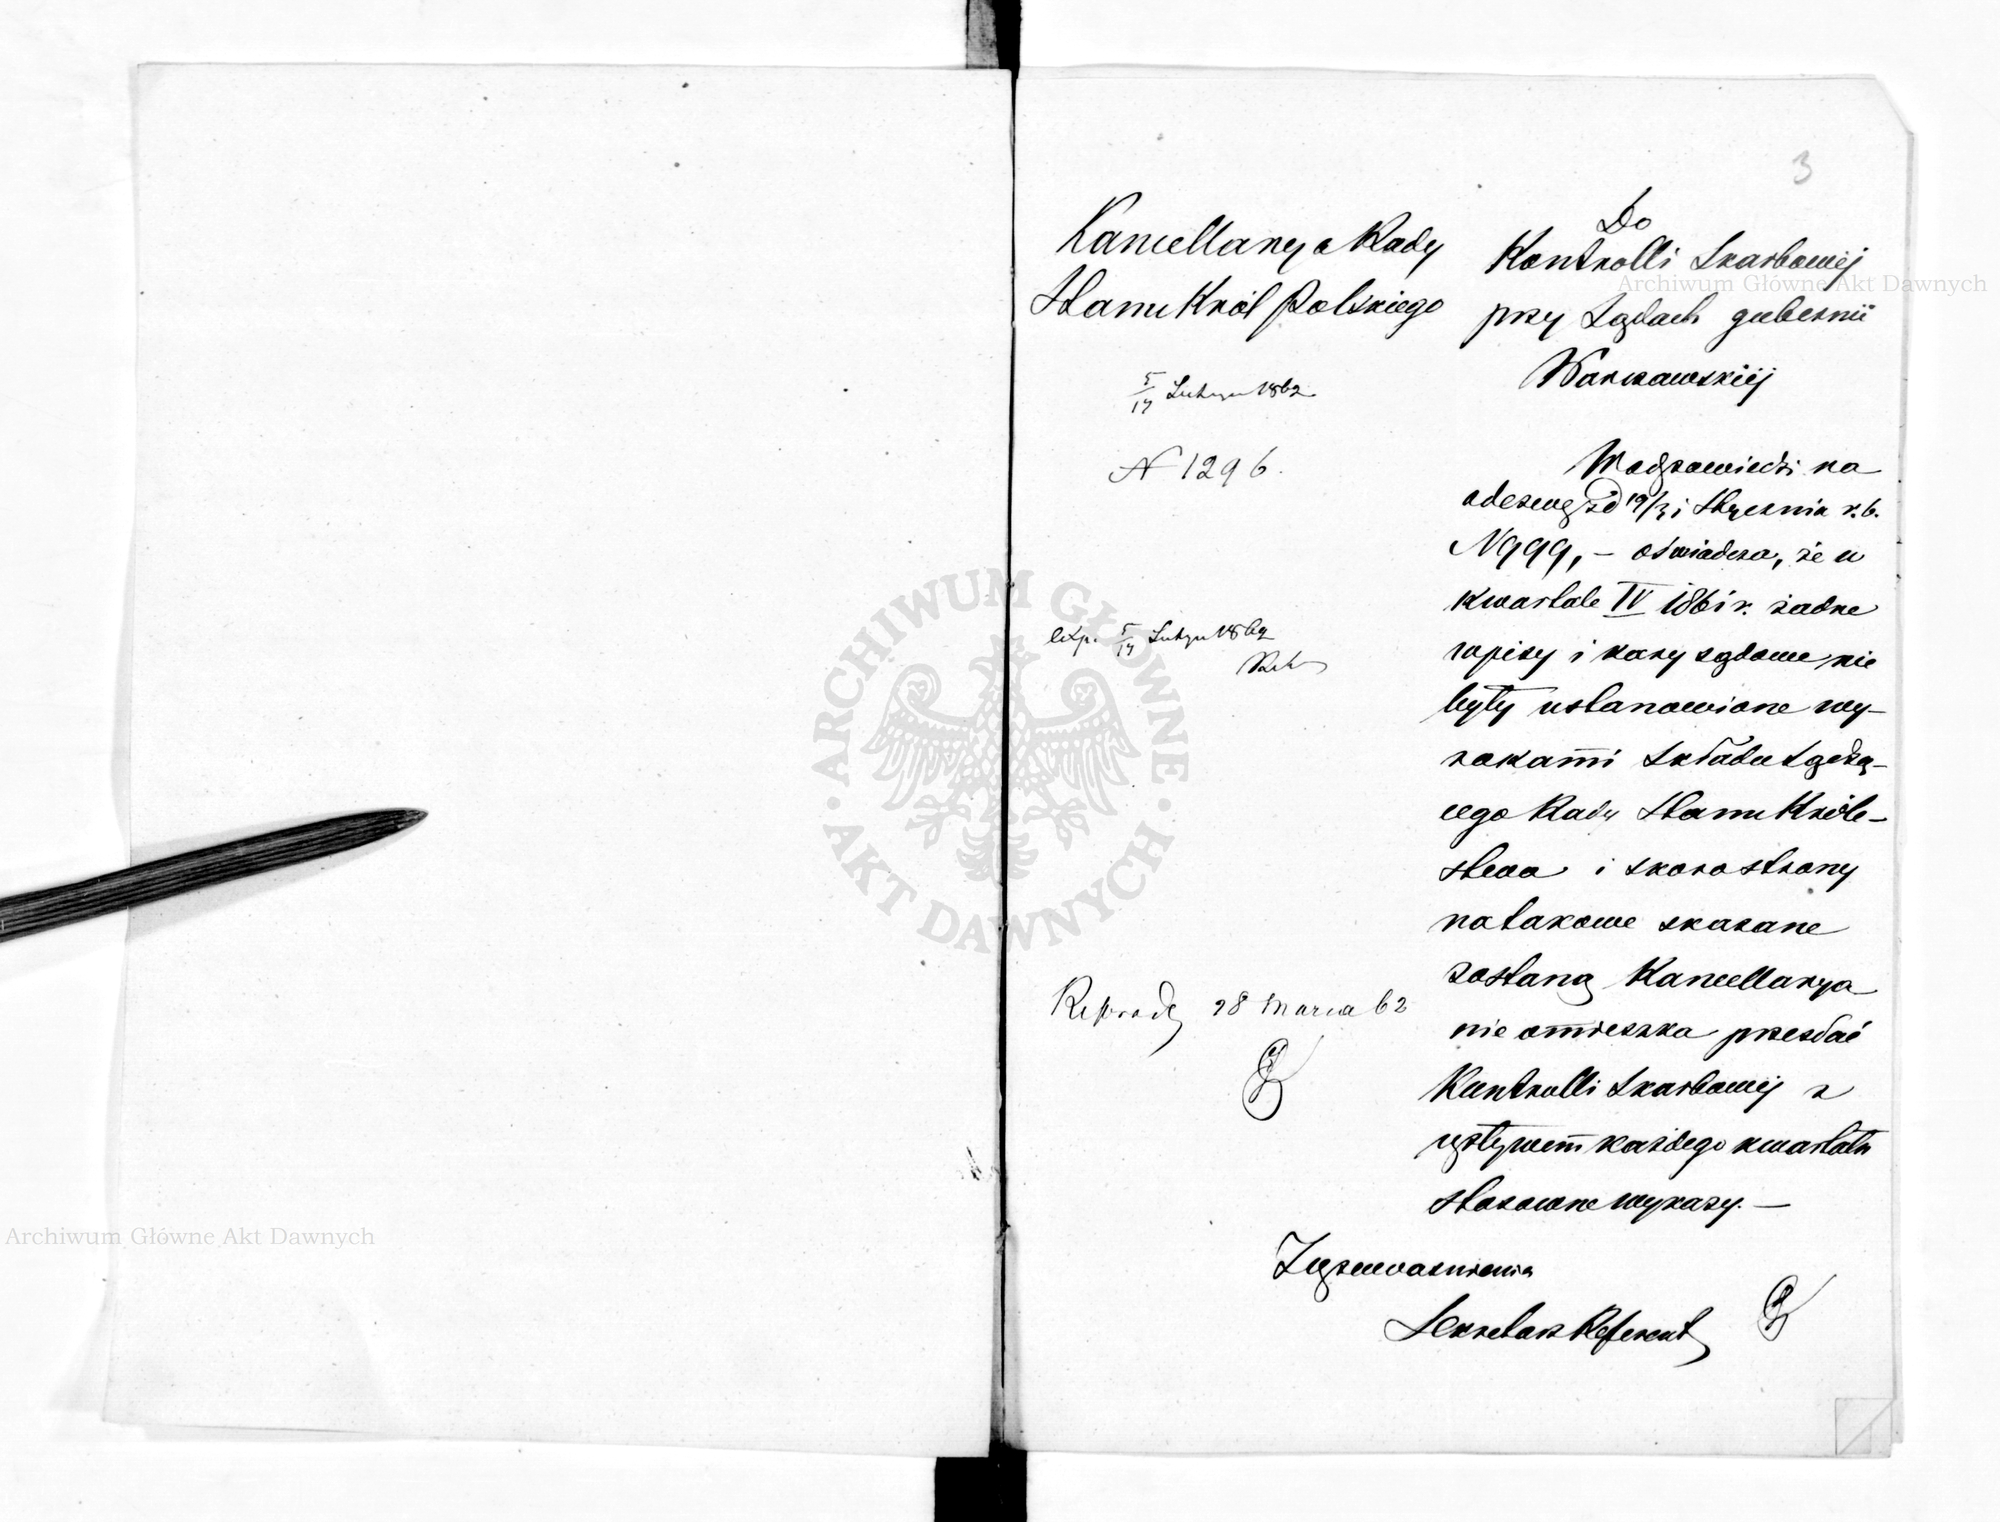 3
Kancellarya Rady
Stanu Król Polskiego
5/17 Lutego 1862
N 1296.
exp. 5/17 Lutego 1862
Reprod 28 Marca 62
Do
Kontrolli Skarbowej
przy Sądach gubernii
Warszawskiéj
W odpowiedzi na
odezwę z d 19/31 Stycznia r.b.
N 999, – oświadcza, że w
kwartale IV 1861 r. żadne
wpisy i kary sądowe nie
były ustanowione wy-
rokami Składu Sądzą-
cego Rady Stanu Króle-
stwa i skoro strony
na takowe skazane
zostaną Kancellarya
nie omieszka przesłać
Kontrolli Skarbowej z
upływem każdego kwartału
stosowne wykazy. –
Z upoważnienia
Sekretarz Referent
ARCHIWUM GŁÓWNE
AKT DAWNYCH
Archiwum Główne Akt Dawnych
Archiwum Główne Akt Dawnych